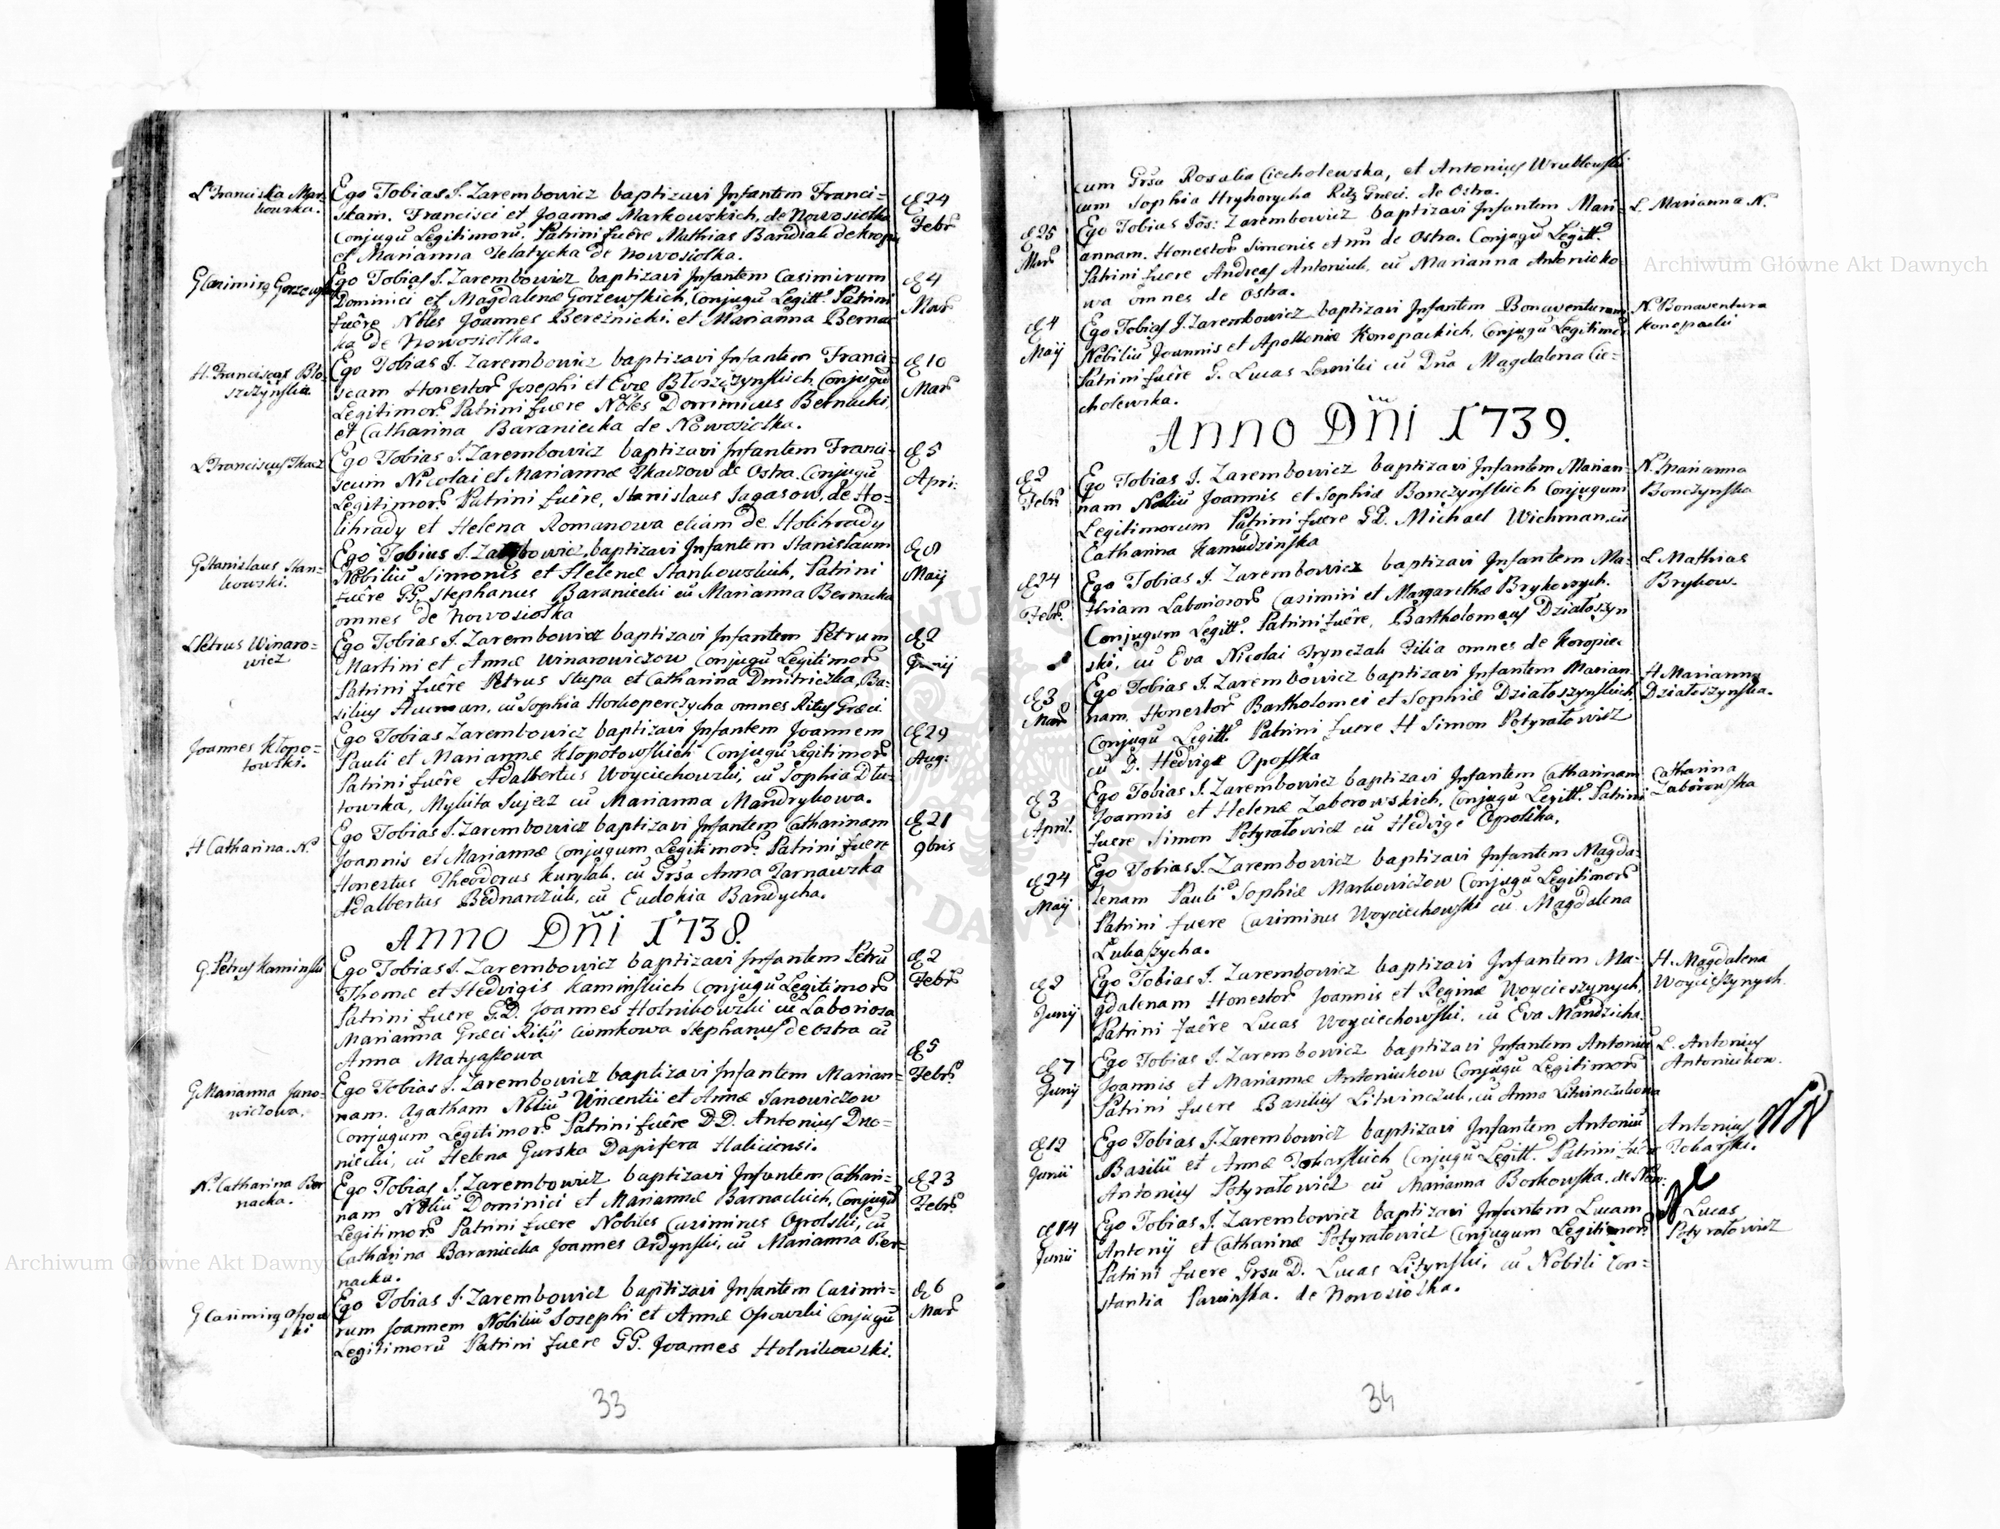 L. Franciska Mar-
kowska.
Ego Tobias J. Zarembowicz baptizavi Infantem Franci-
skam. Francisci et Joannæ Markowskich, de Nowosiolka
Conjugũ Legitimorũ. Patrini fuêre Mathias Bandiak de
et Marianna de Nowosiolka.
d 24
Febr
G Casimirg Gorzewski
Ego Tobias J. Zarembowicz baptizavi Infantem Casimirum
Dominici et Magdalenæ Gorzewskich, Conjugũ Legitt. Patrini
fuêre Nbles Joannes Bereznicki. et Marianna Bernac
ka de Nowosiolka.
d 4
Mar
H. Franciscus Blo-
szczynska
Ego Tobias J. Zarembowicz baptizavi Infantem Franci-
scam Honestor Josephi et Evæ Błoszczynskich Conjugũ
Legitimor. Patrini fuere Nbles Dominicus Bernacki,
et Catharina Baraniecka de Nowosiolka.
d 10
Mar
L Franciscus Tkacz
Ego Tobias J. Zarembowicz baptizavi Infantem Franci-
scum Nicolai et Mariannæ Tkaczow de Ostra. Conjugũ
Legitimor. Patrini fuêre, Stanislaus Sagasow, de Ho-
lihrady et Helena Romanowa etiam de Holihrady
d 5
Apri:
G Stanislaus Stan-
kowski.
Ego Tobius J. baptizavi Infantem Stanislaum
Nobiliũ Simonis et Helenæ Stankowskich, Patrini
fuêre GG. Stephanus Baraniecki cũ Marianna Bernacka
omnes de Nowosiolka
d 8
Maij
L Petrus Winaro-
wicz
Ego Tobias J. Zarembowicz baptizavi Infantem Petrum
Martini et Annæ Winarowiczow Conjugũ Legitimor
Patrini fuêre Petrus Slupa et Catharina Dmitriczka, Ba-
silius cũ Sophia omnes Ritus Græci
d 2
Joannes Kłopo-
towski.
Ego Tobias Zarembowicz baptizavi Infantem Joannem
Pauli et Mariannæ Klopotowskich Conjugũ Legitimor
Patrini fuêre Adalbertus Woyciechowski, cũ Sophia Dłu-
towska, Mykita cũ Marianna Mandrykowa.
d 29
Aug:
H Catharina. N.
Ego Tobias J. Zarembowicz baptizavi Infantem Catharinam
Joannis et Mariannæ Conjugum Legitimor. Patrini fuere
Honestus Theodorus Kurylak. cũ Grsa Anna Tarnawska
Adalbertus Bednarczuk, cũ Eudokia Bandycha.
d 21
9bris
Anno Dñi 1738.
G. Petrus Kaminski
Ego Tobias J. Zarembowicz baptizavi Infantem Petrũ
Thomæ et Hedvigis Kaminskich Conjugũ Legitimor
Patrini fuere G.D. Joannes Holnikowski cũ Laboriosa
Marianna Græci Ritus Stephanus de Ostra cũ
Anna Matyaszowa
d 2
Febr
G Marianna Jano-
wiczowa.
Ego Tobias J. Zarembowicz baptizavi Infantem Marian-
nam. Agatham Nbliũ Vincentii et Annæ Janowiczow
Conjugum Legitimor. Patrini fuêre D.D. Antonius Dno-
niecki, cũ Helena Gurska Dapifera Haliciensi.
d 5
Febr.
N. Catharina Ber
nacka.
Ego Tobias J. Zarembowicz baptizavi Infantem Cathari-
nam Nbliũ Dominici et Mariannæ Barnackich, Conjugũ
Legitimor. Patrini fuere Nobiles Casimirus Opolski, cũ
Catharina Baraniecka Joannes Ordynski, cũ Marianna Ber-
nacka.
d 23
Febr
G Casimirg
Ego Tobias J. Zarembowicz baptizavi Infantem Casimi-
rum Joannem Nobiliũ Josephi et Annæ Conjugũ
Legitimorũ Patrini fuere GG. Joannes Holnikowski.
d 6
Mar
33
cum Grsa Rosalia Ciecholewska, et Antonius Wrublewski
cum Sophia Hryhorycha Ritg Græci. de Ostra.
d 25
Mar
Ego Tobias Jos: Zarembowicz baptizavi Infantem Mari-
annam. Honestor Simonis et nn de Ostra. Conjugũ Legitt.
Patrini fuere Andreas Antoniuk, cũ Marianna Antonicko-
wa omnes de Ostra.
L. Marianna N.
d 4
Maij
Ego Tobias J. Zarembowicz baptizavi Infantem Bonaventuram
Nobiliũ Joannis et Apolloniæ Konopackich, Conjugũ Legitimor
Patrini fuêre G. Lucas cũ Dña Magdalena Cie-
cholewska.
N. Bonaventura
Konopacki
Anno Dñi 1739.
d 2
Febr
Ego Tobias J. Zarembowicz baptizavi Infantem Marian-
nam Nbliũ Joannis et Sophiæ Bonczynskich Conjugum
Legitimorum Patrini fuere GD. Michael Wichman, cũ
Catharina Kamudzinska
N. Marianna
Bonczynska
d 24
Febr.
Ego Tobias J. Zarembowicz baptizavi Infantem Ma-
thiam Laboriosor Casimiri et Margarethæ Brykowych.
Conjugum Legitt. Patrini fuêre, Bartholomeus Działoszyn
ski, cũ Eva Nicolai Hrynczak Filia omnes de Koropiec
L Mathias
Brykow.
d 3
Mar
Ego Tobias J. Zarembowicz baptizavi Infantem Marian-
nam. Honestor Bartholomei et Sophiæ Działoszynskich
Conjugũ Legitt. Patrini fuere H Simon Potyralowicz
cũ D. Hedvige Opolska
H Marianna
Działoszynska.
d 3
April.
Ego Tobias J. Zarembowicz baptizavi Infantem Catharinam
Joannis et Helenæ Zaborowskich, Conjugũ Legitt. Patrini
fuere Simon Potyralowicz cũ Hedvige Opolska.
Catharina
Zaborowska
d 24
Maij
Ego Tobias J. Zarembowicz baptizavi Infantem Magda-
lenam Pauli Sophiæ Markowiczow Conjugũ Legitimor
Patrini fuere Casimirus Woyciechowski cũ Magdalena
Lukaszycha.
d 2
Junij
Ego Tobias J. Zarembowicz baptizavi Infantem Ma-
gdalenam Honestor Joannis et Reginæ Woycieszynych,
Patrini fuêre Lucas Woyciechowski, cũ Eva Mandzicha.
H. Magdalena
Woycieszynych
d 7
Junij
Ego Tobias J. Zarembowicz baptizavi Infantem Antoniũ
Joannis et Mariannæ Antoniukow Conjugũ Legitimor
Patrini fuere Basilius Litwinczuk, cũ Anna Litwinczukowa
L. Antonius
Antoniukow.
d 12
Junii
Ego Tobias J. Zarembowicz baptizavi Infantem Antoniũ
Basilii et Annæ Tokarskich Conjugũ Legitt. Patrini fuêre
Antonius Potyralowicz cũ Marianna Borkowska, de Now:
Antonius
Tokarski.
d 14
Junii
Ego Tobias J. Zarembowicz baptizavi Infantem Lucam
Antonii et Catharinæ Potyralowicz Conjugum Legitimor
Patrini fuere Grsu D. Lucas Lityński, cũ Nobili Con-
stantia de Nowosiolka.
Lucas
Potyralowicz
34
Archiwum Główne Akt Dawnych
Archiwum Główne Akt Dawnych